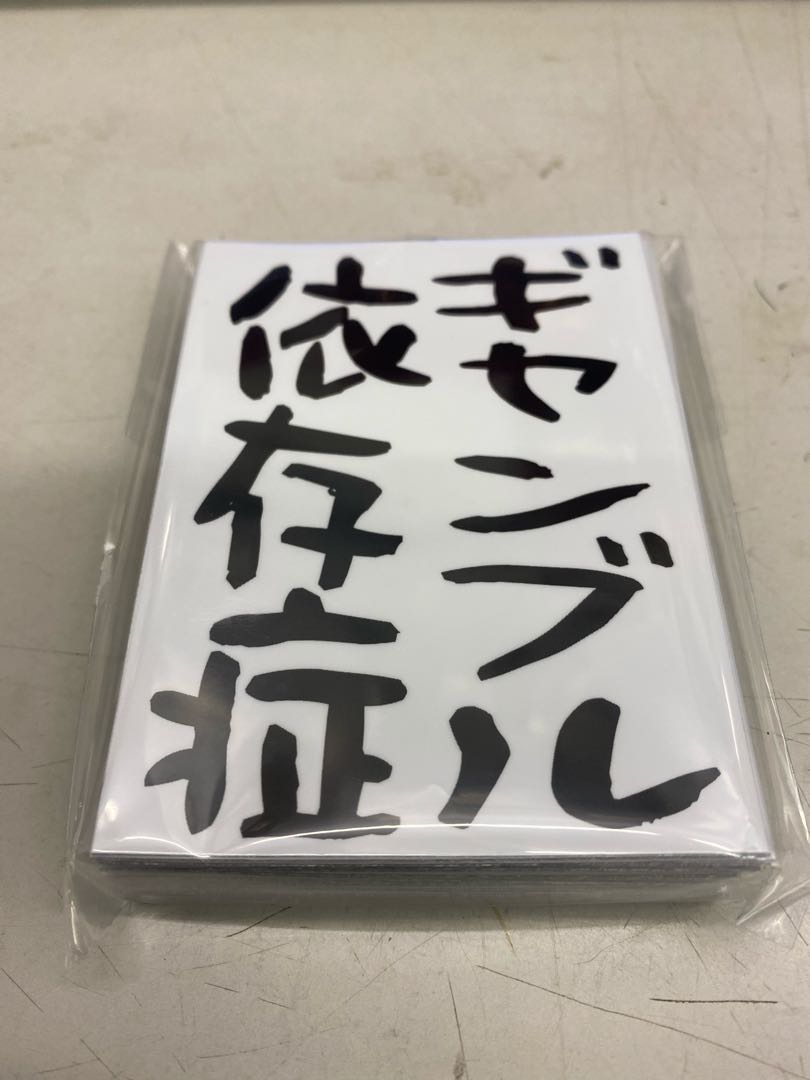 ギャンブル
依存症